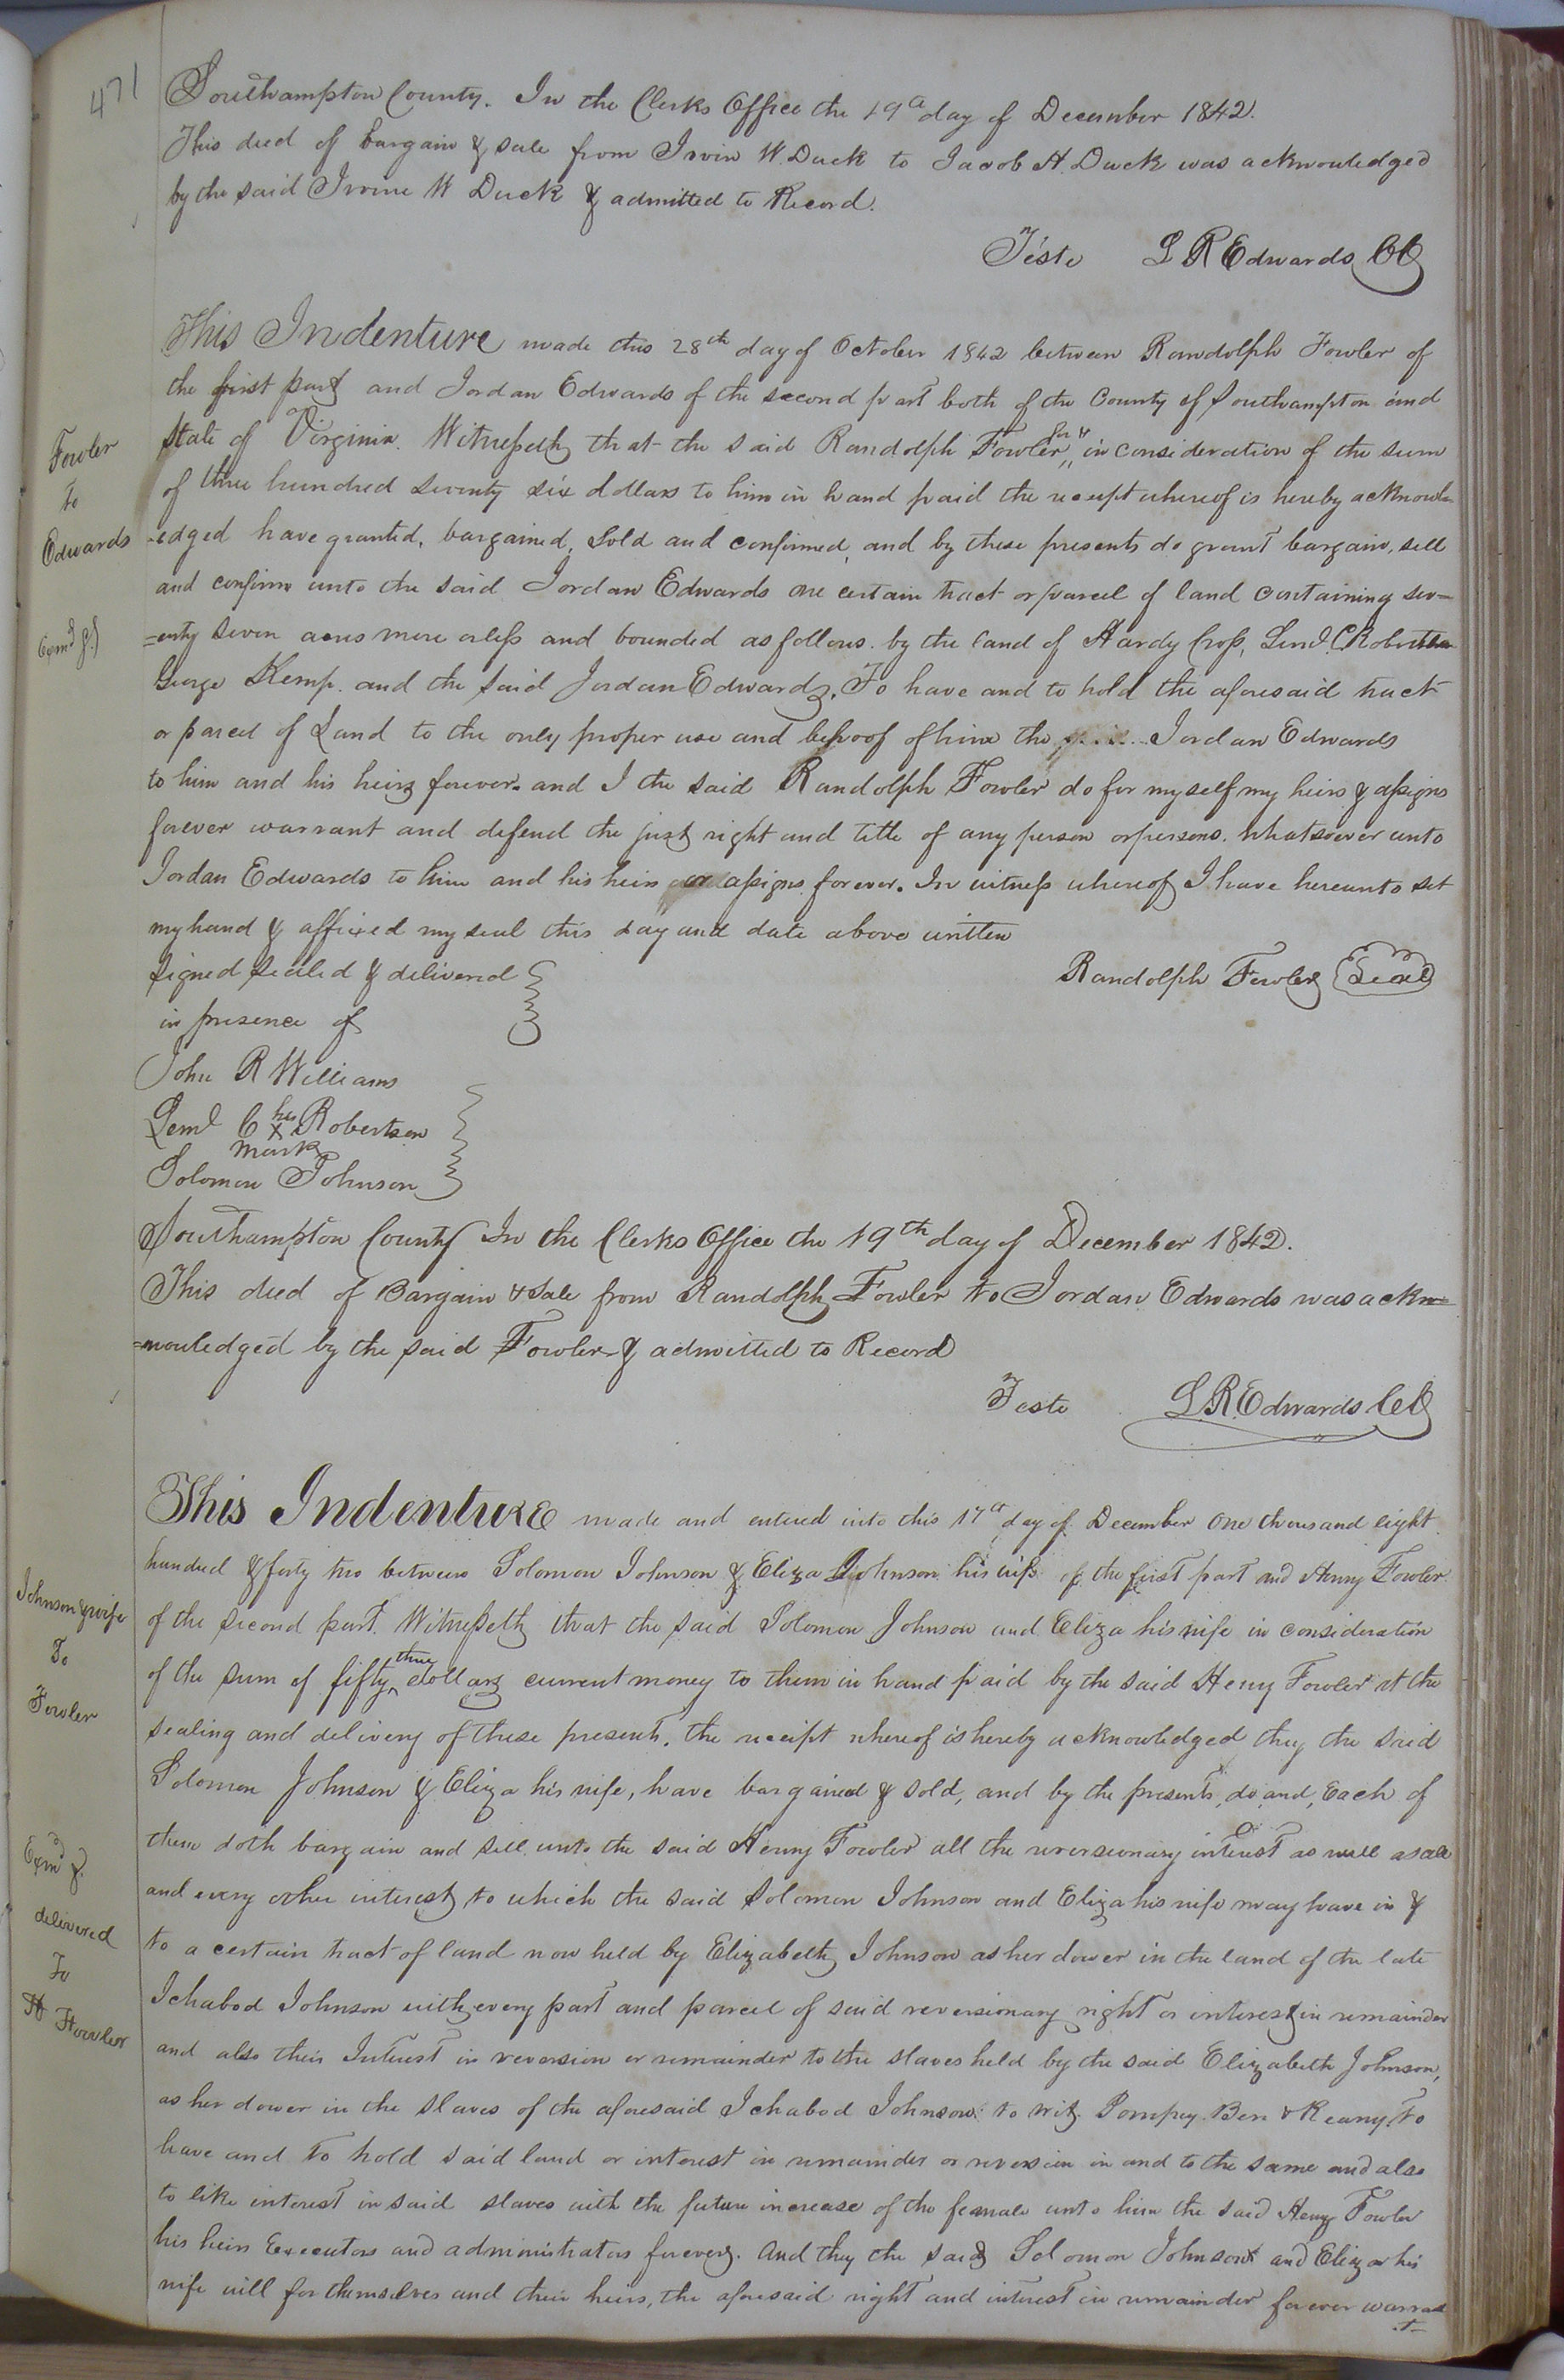 471
Southampton County. In the Clerks Office the 19th day of December 1842.
This deed of bargain & sale from Irvin W. Duck to Jacob H. Duck was acknowledged
by the said Irvine W Duck & admitted to Record.
Teste L R Edwards CC
This Indenture made this 28th day of October 1842 between Randolph Fowler of
the first part and Jordan Edwards of the second part both of the County of Southampton and
State of Virginia. Witnesseth that the said Randolph Fowler for & in consideration of the sum
of three hundred seventy six dollars to him in hand paid the receipt whereof is hereby acknowl-
-edged have granted, bargained, Sold and confirmed, and by these presents do grant bargain, sell
and confirm unto the said Jordan Edwards one certain tract or parcel of land containing sev=
=enty seven acres more or less and bounded as follows. by the land of Hardy Cross, Leml. C Robertson
George Kemp. and the said Jordan Edwards. To have and to hold the aforesaid tract
or parcel of Land to the only proper use and behoof of him the Jordan Edwards
to him and his heirs forever. and I the said Randolph Fowler do for myself my heirs & assigns
forever warrant and defend the just right and title of any person or persons. whatsoever unto
Jordan Edwards to him and his heirs or assigns forever. In witness whereof I have hereunto set
my hand & affixed my seal this day and date above written
Signed Sealed & delivered
in presence of
Randolph Fowler Seal
John R Williams
Leml C his x mark Robertson
Solomon Johnson
Southampton County In the Clerks Office the 19th day of December 1842.
This deed of Bargain & Sale from Randolph Fowler to Jordan Edwards was ackn=
=nowledged by the said Fowler & admitted to Record
Teste L. R. Edwards CC
This Indenture made and entered into this 17th day of December One thousand eight
hundred & forty two between Solomon Johnson & Eliza Johnson his wife of the first part and Henry Fowler
of the second part. Witnesseth that the said Solomon Johnson and Eliza his wife in consideration
of the sum of fifty three dollars current money to them in hand paid by the said Henry Fowler at the
sealing and delivery of these presents, the receipt whereof is hereby acknowledged they the said
Solomon Johnson & Eliza his wife, have bargained & sold, and by the presents, do and, Each of
them doth bargain and sell unto the said Henry Fowler all the reversionary interest as well as all
and every other interest to which the said Solomon Johnson and Eliza his wife may have in &
to a certain tract of land now held by Elizabeth Johnson as her dower in the land of the late
Ichabod Johnson with every part and parcel of said reversionary right or interest in remainder
and also their Interest in reversion or remainder to the slaves held by the said Elizabeth Johnson,
as her dower in the Slaves of the aforesaid Ichabod Johnson: to wit. Pompey Ben & Keany To
have and to hold said land or interest in remainder or reversion in and to the same and also
to like interest in said slaves with the future increase of the female unto him the said Henry Fowler
his heirs Executors and administrators forever. And they the said Solomon Johnson and Eliza his
wife will for themselves and their heirs, the aforesaid right and interest in remainder forever warran
t-
Fowler
to
Edwards
Exmd
Johnson & wife
To
Fowler
Exmd
delivered
To
H Fowler